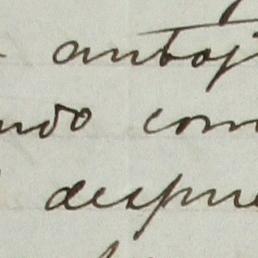 antoj
ndo com
despue